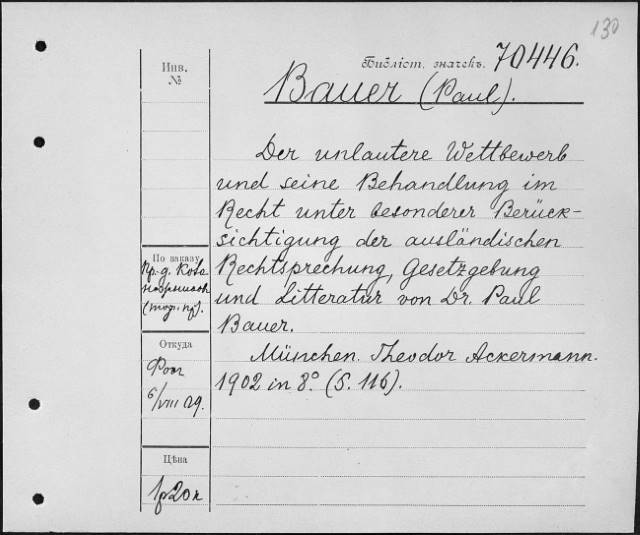 130
Библіот. значекъ. 70446.
Bauer (Paul).
Инв.
№
Der unlautere Wettbewerb
und seine Behandlung im
Recht unter besonderer Berück-
sichtigung der ausländischen
Rechtsprechung, Gesetzgebung
und Litteratur von Dr. Paul
Bauer.
München. Theodor Ackermann.
1902 in 8° (S. 116).
По заказу
пр-д.
Откуда
6/VIII 09.
Цѣна
1р20к